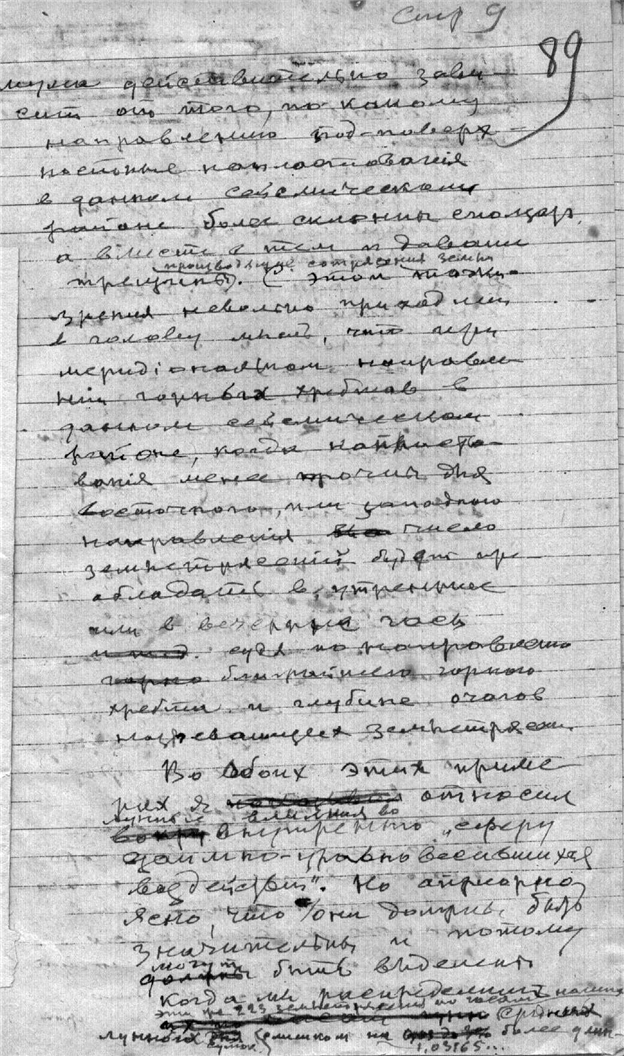 стр 9
89
действительно зави-
сит от того, по какому
направлению под-поверх-
ностные напластованія
в данном сейсмическом
районе более склонны
а вместе с тем и давать
производящие сотрясения земли
трещины). С этой точки
зрения невольно приходит
в голову мысль, что при
меридіональном направле-
ніи горных хребтов в
данном сейсмическом
районе, когда напласто-
ванія менее прочны для
восточного, или западного
направления число
землетрясений будет пре-
обладать в утренние
или в вечерние часы
судя по направлению
горно ближайшего горного
хребта и глубине очагов
назревающих землетрясен.
Во обоих этих приме
рах я относил
лунные влияния во
внутреннюю „сферу
взаимно-уравновесившихся
воздействий". Но априорно
ясно, что они должны быть
значительны и потому
могут
должны быть выделены
Когда мы распределим
эти 223 землетрясения по часам
средних
лунного (слишком на более длин-
суток)
1,03165...